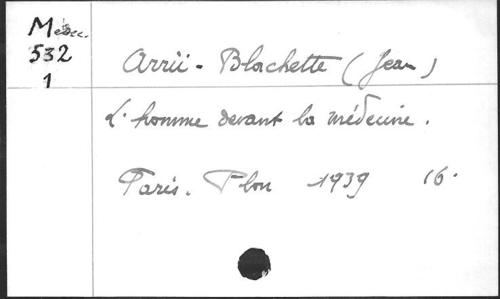 Médec.
532
1
Arrii-Blachette (Jean)
L'homme devant la médecine.
Paris. Plon 1939 16°